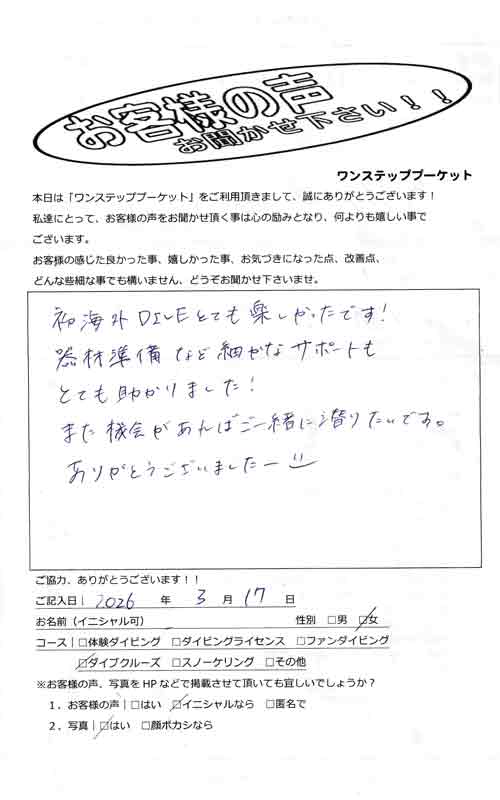 お客様の声
お聞かせ下さい！！
ワンステッププーケット
本日は「ワンステッププーケット」をご利用頂きまして、誠にありがとうございます！
私達にとって、お客様の声をお聞かせ頂く事は心の励みとなり、何よりも嬉しい事で
ございます。
お客様の感じた良かった事、嬉しかった事、お気づきになった点、改善点、
どんな些細な事でも構いません、どうぞお聞かせ下さいませ。
初海外DIVEとても楽しかったです！
器材準備など細かなサポートも
とても助かりました！
また機会があればご一緒に潜りたいです。
ありがとうございましたー
ご協力、ありがとうございます！！
ご記入日| 2026 年 3 月 17 日
お名前（イニシャル可） 性別 □男 ☑女
コース| □体験ダイビング □ダイビングライセンス □ファンダイビング
☑ダイブクルーズ □スノーケリング □その他
※お客様の声、写真をHPなどで掲載させて頂いても宜しいでしょうか？
1．お客様の声|□はい ☑イニシャルなら □匿名で
2．写真|☑はい □顔ボカシなら